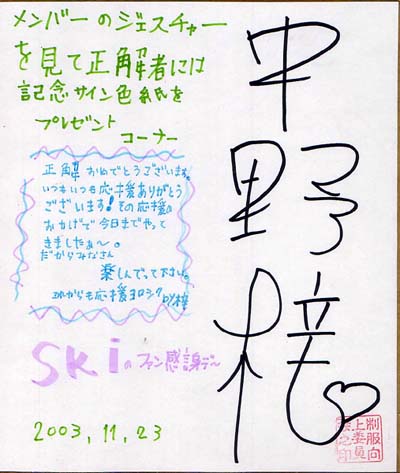 メンバーのジェスチャー
を見て正解者には
記念サイン色紙を
プレゼント
コーナー
正解 おめでとうございます。
いつもいつも応援ありがとう
ございます!その応援の
おかげで今日までやって
きましたぁ〜。
だからみなさん
楽しんでって下さい。
これからも応援ヨロシク by梓
SKiの ファン感謝デー
2003,11,23
中野梓
制服向
上委員
会之印